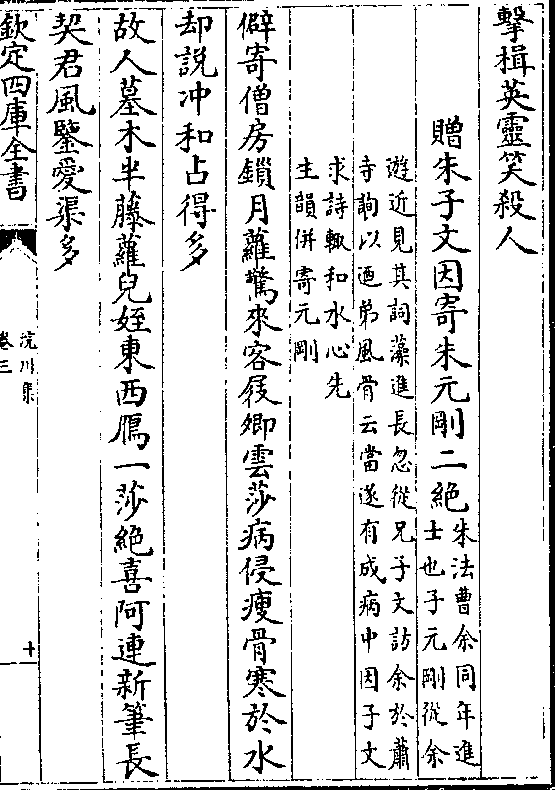 擊楫英靈笑殺人
贈朱子文因寄朱元剛二絶朱法曹余同年進
士也子元剛從余
遊近見其詞藻進長忽從兄子文訪余於蕭
寺詢以廼弟風骨云當遂有成病中因子文
求詩輙和水心先
生韻併寄元剛
僻寄僧房鎖月蘿驚來客屐卿雲莎病侵瘦骨寒於水
却説冲和占得多
故人墓木半藤蘿兒姪東西鴈一莎絶喜阿連新筆長
契君風鑒愛渠多
欽定四庫全書
浣川集
卷三
十